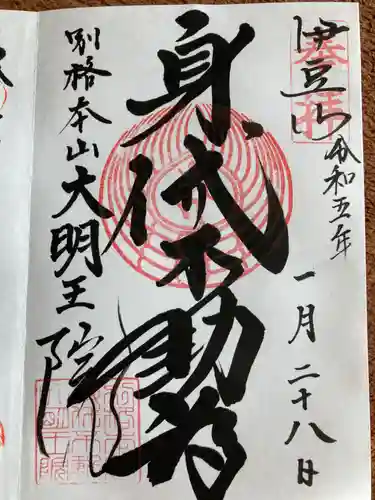 伊豆山
奉拝
令和五年
一月二十八日
身代不動尊
別格本山大明王院